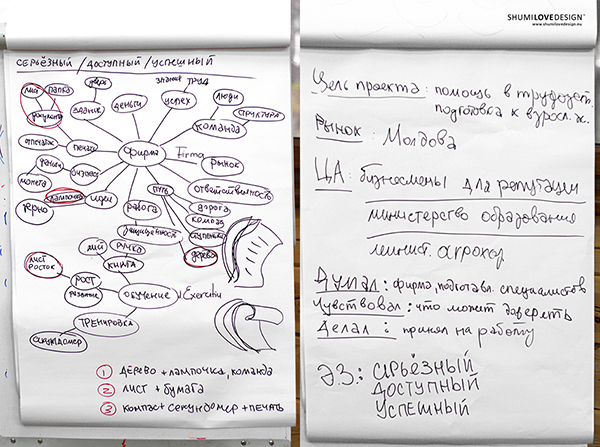 СЕРЬЁЗНЫЙ / ДОСТУПНЫЙ / УСПЕШНЫЙ
ЛИСТ
ПАПКА
ДВЕРЬ
ЗДАНИЕ
ДЕНЬГИ
ЗНАНИЕ
ТРУД
УСПЕХ
ЛЮДИ
СТРУКТУРА
КОМАНДА
ДОКУМЕНТЫ
ОТПЕЧАТОК
ПЕЧАТЬ
ФИРМА
Firma
РЫНОК
ДЕНЬГИ
БИЗНЕС
МОНЕТА
ЛАМПОЧКА
ИДЕИ
ЗЕРНО
ПУТЬ
ОТВЕТСТВЕННОСТЬ
ДОРОГА
КОМПАС
СТУПЕНЬКИ
ДЕРЕВО
РАБОТА
ЗАЩИЩЁННОСТЬ
ЛИСТ
РОСТОК
ЛИСТ
РУЧКА
КНИГА
РОСТ
РАЗВИТИЕ
ОБУЧЕНИЕ
ТРЕНИРОВКА
СЕКУНДОМЕР
1 ДЕРЕВО + ЛАМПОЧКА, КОМАНДА
2 ЛИСТ + БУМАГА
3 КОМПАС + СЕКУНДОМЕР + ПЕЧАТЬ
SHUMILOVEDESIGN
www.shumilovedesign.eu
Цель проекта: помощь в трудоуст.
подготовка к взросл. ж.
Рынок: Молдова
ЦА: бизнесмены для репутации
министерство образования
Думал: фирма, подготавл. специалистов
Чувствовал: что может доверять
Делал: принял на работу
Э.З.: СЕРЬЁЗНЫЙ
ДОСТУПНЫЙ
УСПЕШНЫЙ